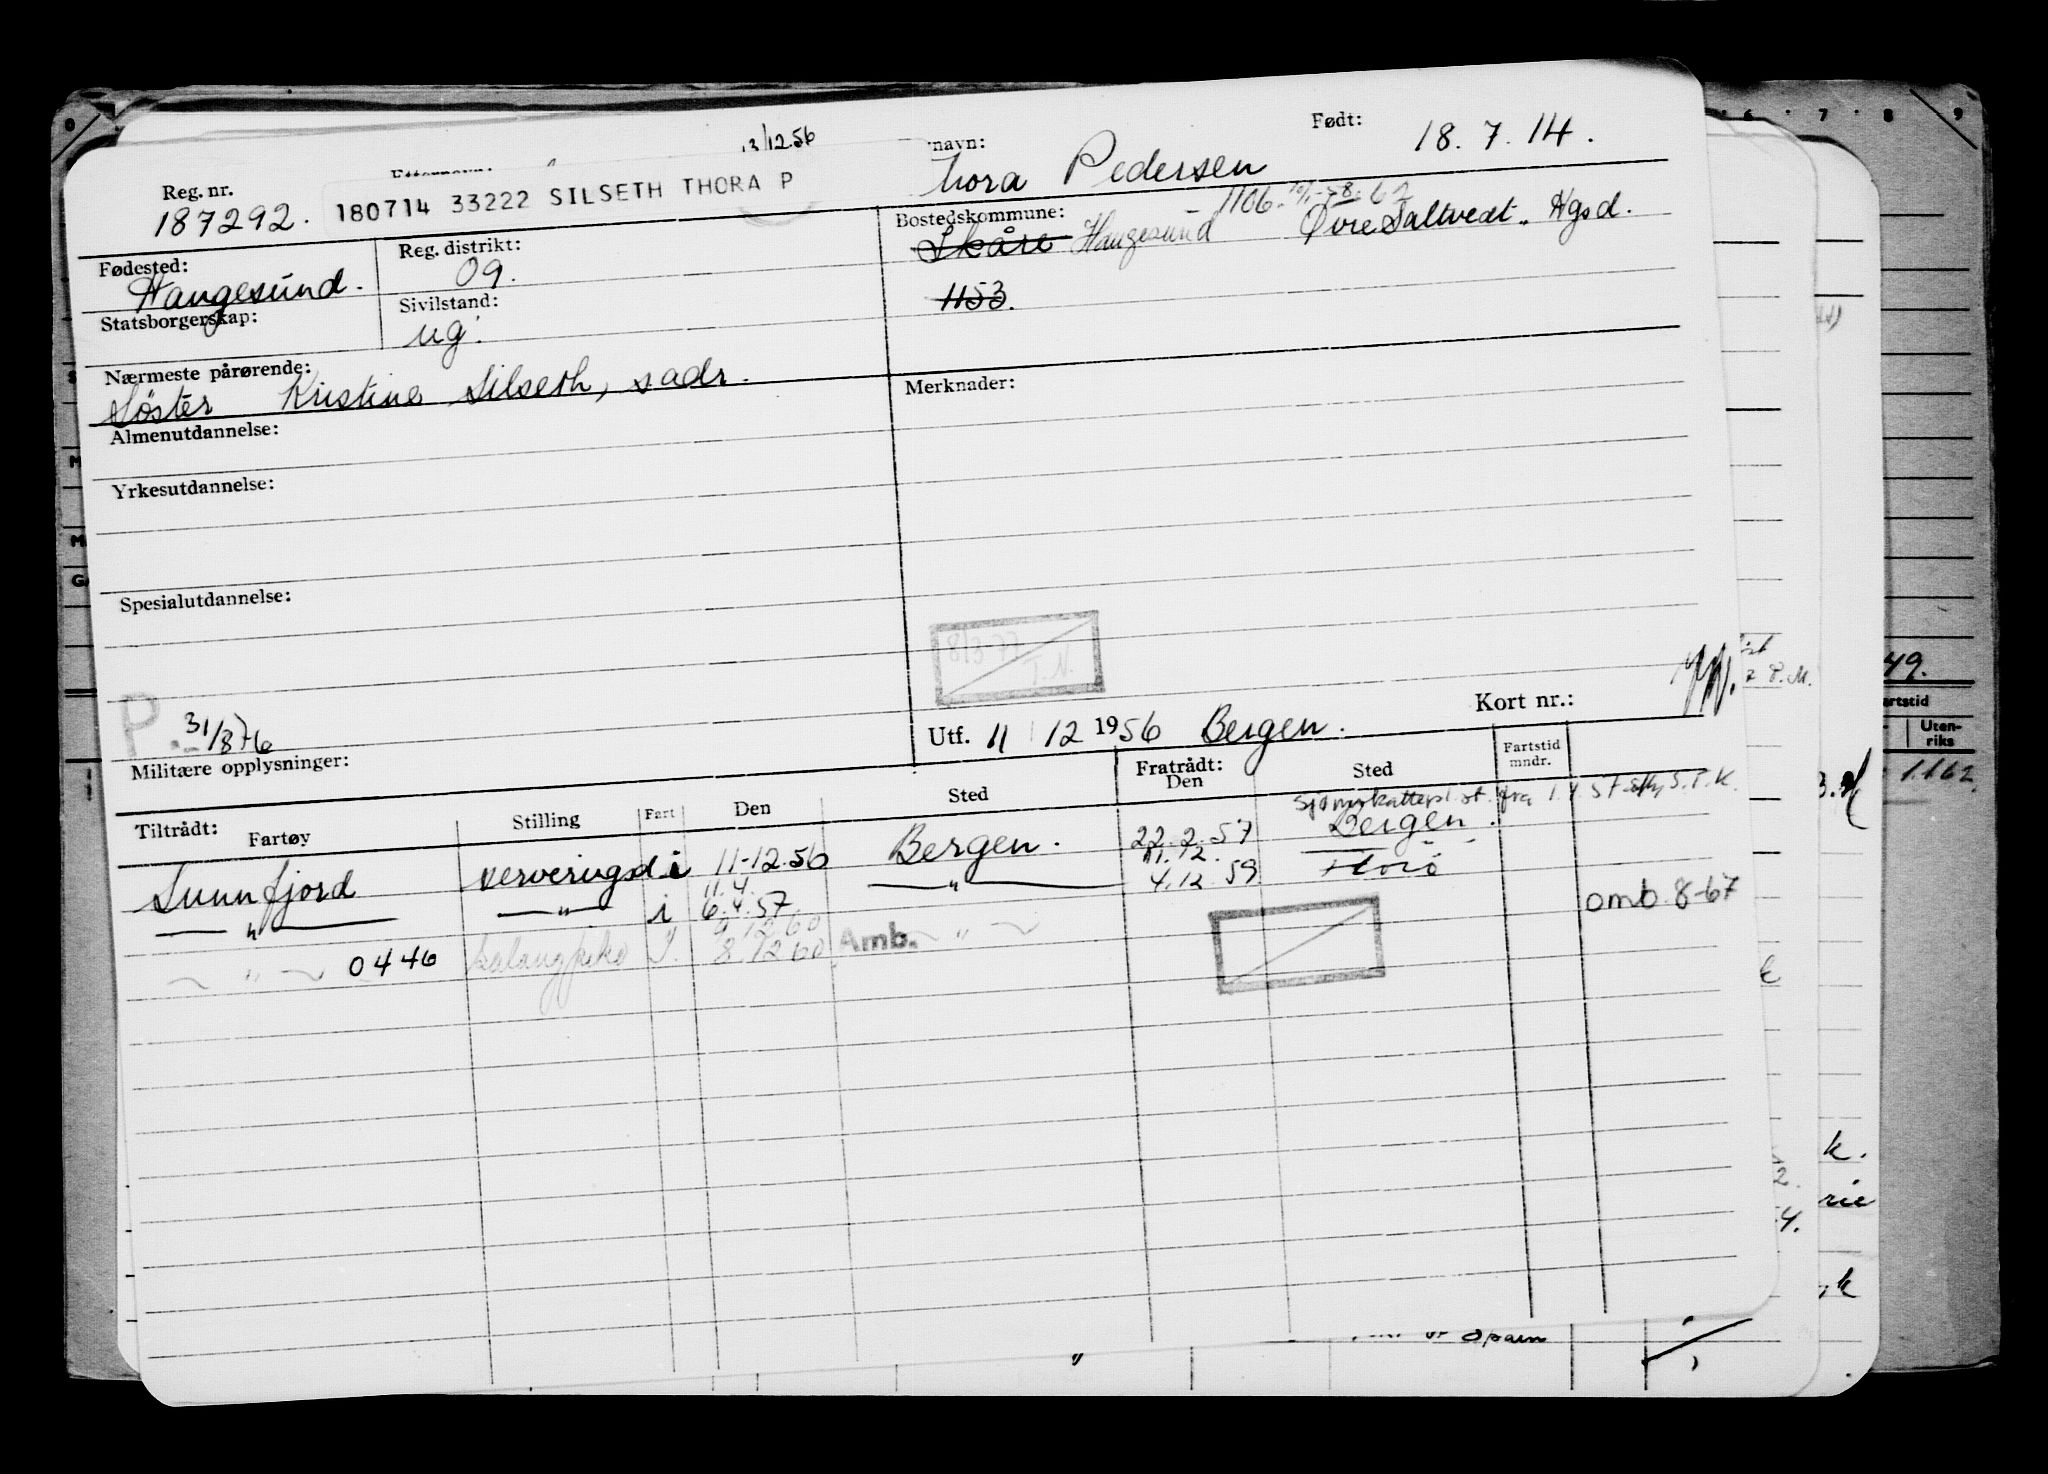 13/12.56
Reg. nr.
187292.
180714 33222 SILSETH THORA P
navn:
Thora Pedersen
Født:
18.7.14.
Fødested:
Haugesund.
Reg. distrikt:
09.
Bostedskommune:
Skåre Haugesund
1106.
Øvre Saltvedt, Hgsd.
1153.
Statsborgerskap:
Sivilstand:
ug.
Nærmeste pårørende:
Søster Kristine Silseth, s adr.
Merknader:
Almenutdannelse:
Yrkesutdannelse:
Spesialutdannelse:
8/3-77
T.N.
P.
31/8 76
Utf. 11 12 1956 Bergen.
Kort nr.:
Militære opplysninger:
Tiltrådt:
Fartøy
Stilling
Fart
Den
Sted
Fratrådt:
Den
Sted
Fartstid
mndr.
fra 1.1.57 S.P.K.
Sunnfjord
i
11-12.56
Bergen.
22.2.57
Bergen.
— " —
— " —
i
11.4.
6.4.57
— " —
11.12.
4.12.59
Florö
omb. 8-67
— " — 0446
9.12.60
8.12.60
Amb.
— " —
49.
Uten-
riks
1.162